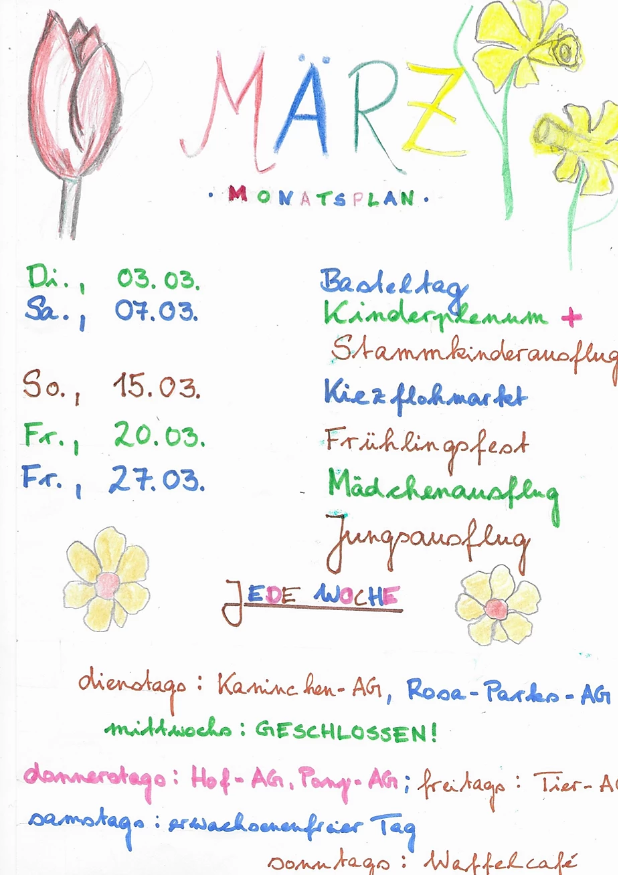 MÄRZ
· MONATSPLAN ·
Di., 03.03. Basteltag
Sa., 07.03. Kinderplenum +
Stammkinderausflug
So., 15.03. Kiezflohmarkt
Fr., 20.03. Frühlingsfest
Fr., 27.03. Mädchenausflug
Jungsausflug
JEDE WOCHE
dienstags: Kaninchen-AG, Rosa-Parks-AG
mittwochs: GESCHLOSSEN!
donnerstags: Hof-AG, Pony-AG; freitags: Tier-AG
samstags: erwachsenenfreier Tag
sonntags: Waffelcafé